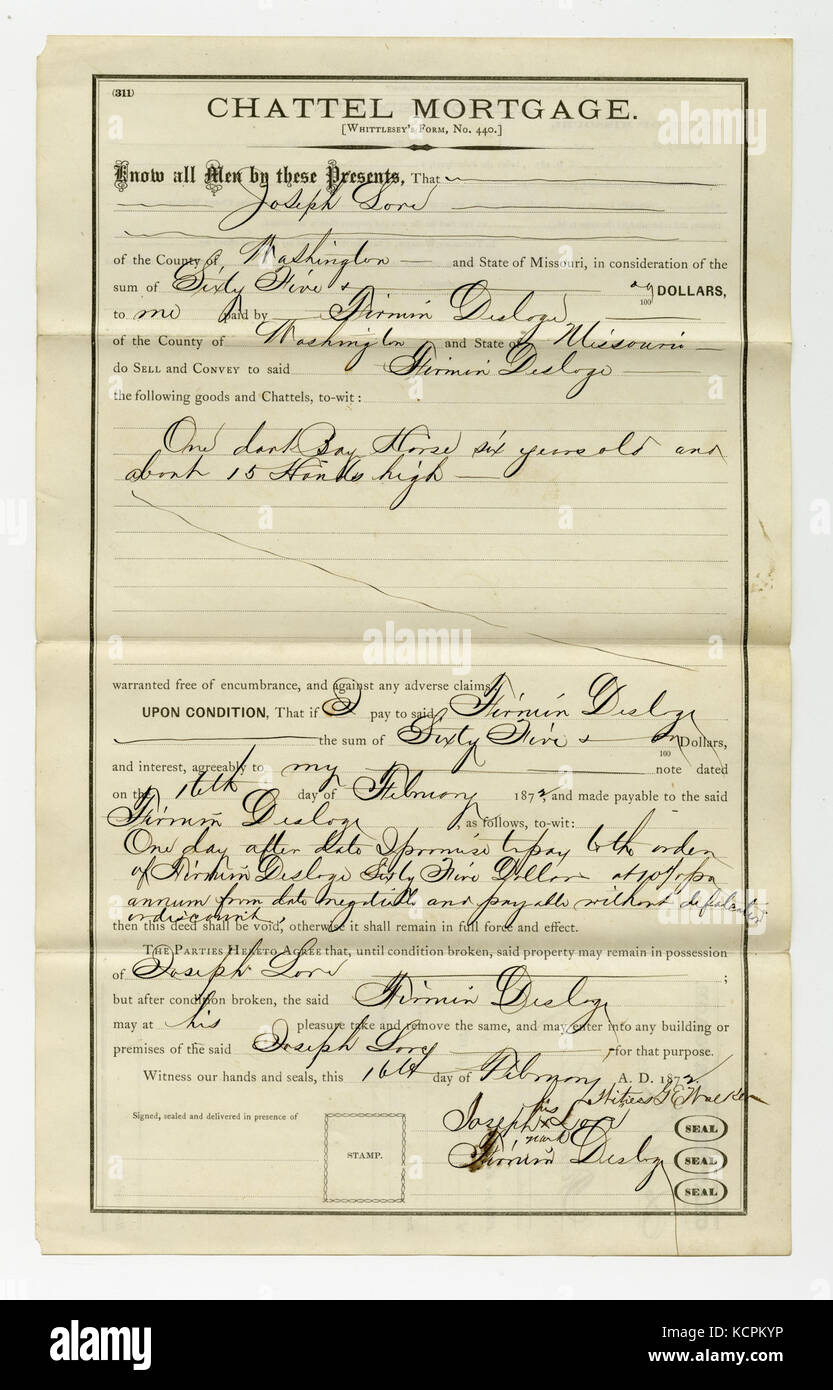 (311)
CHATTEL MORTGAGE.
[WHITTLESEY'S FORM, No. 440.]
Know all Men by these Presents, That
Joseph Lore
of the County of Washington and State of Missouri, in consideration of the
sum of Sixty Five & 100 DOLLARS,
to me paid by Firmin Desloge
of the County of Washington and State of Missouri
do SELL and CONVEY to said Firmin Desloge
the following goods and Chattels, to-wit:
One dark Bay Horse six years old and
about 15 Hands high
warranted free of encumbrance, and against any adverse claims
UPON CONDITION, That if I pay to said Firmin Desloge
the sum of Sixty Five & 100 Dollars,
and interest, agreeably to my note dated
on the 16th day of February 1872, and made payable to the said
Firmin Desloge, as follows, to-wit:
One day after date I promise to pay to the order
of Firmin Desloge Sixty Five Dollars at 10 % pr
annum from date negotiable and payable without defalcation
or discount,
then this deed shall be void, otherwise it shall remain in full force and effect.
THE PARTIES HERETO AGREE that, until condition broken, said property may remain in possession
of Joseph Lore ;
but after condition broken, the said Firmin Desloge
may at his pleasure take and remove the same, and may enter into any building or
premises of the said Joseph Lore for that purpose.
Witness our hands and seals, this 16th day of February A. D. 1872.
Witness G E Walker
Signed, sealed and delivered in presence of
STAMP.
Joseph his x mark Lore SEAL
Firmin Desloge SEAL
SEAL
alamy
Image ID: KCPKYP
www.alamy.com